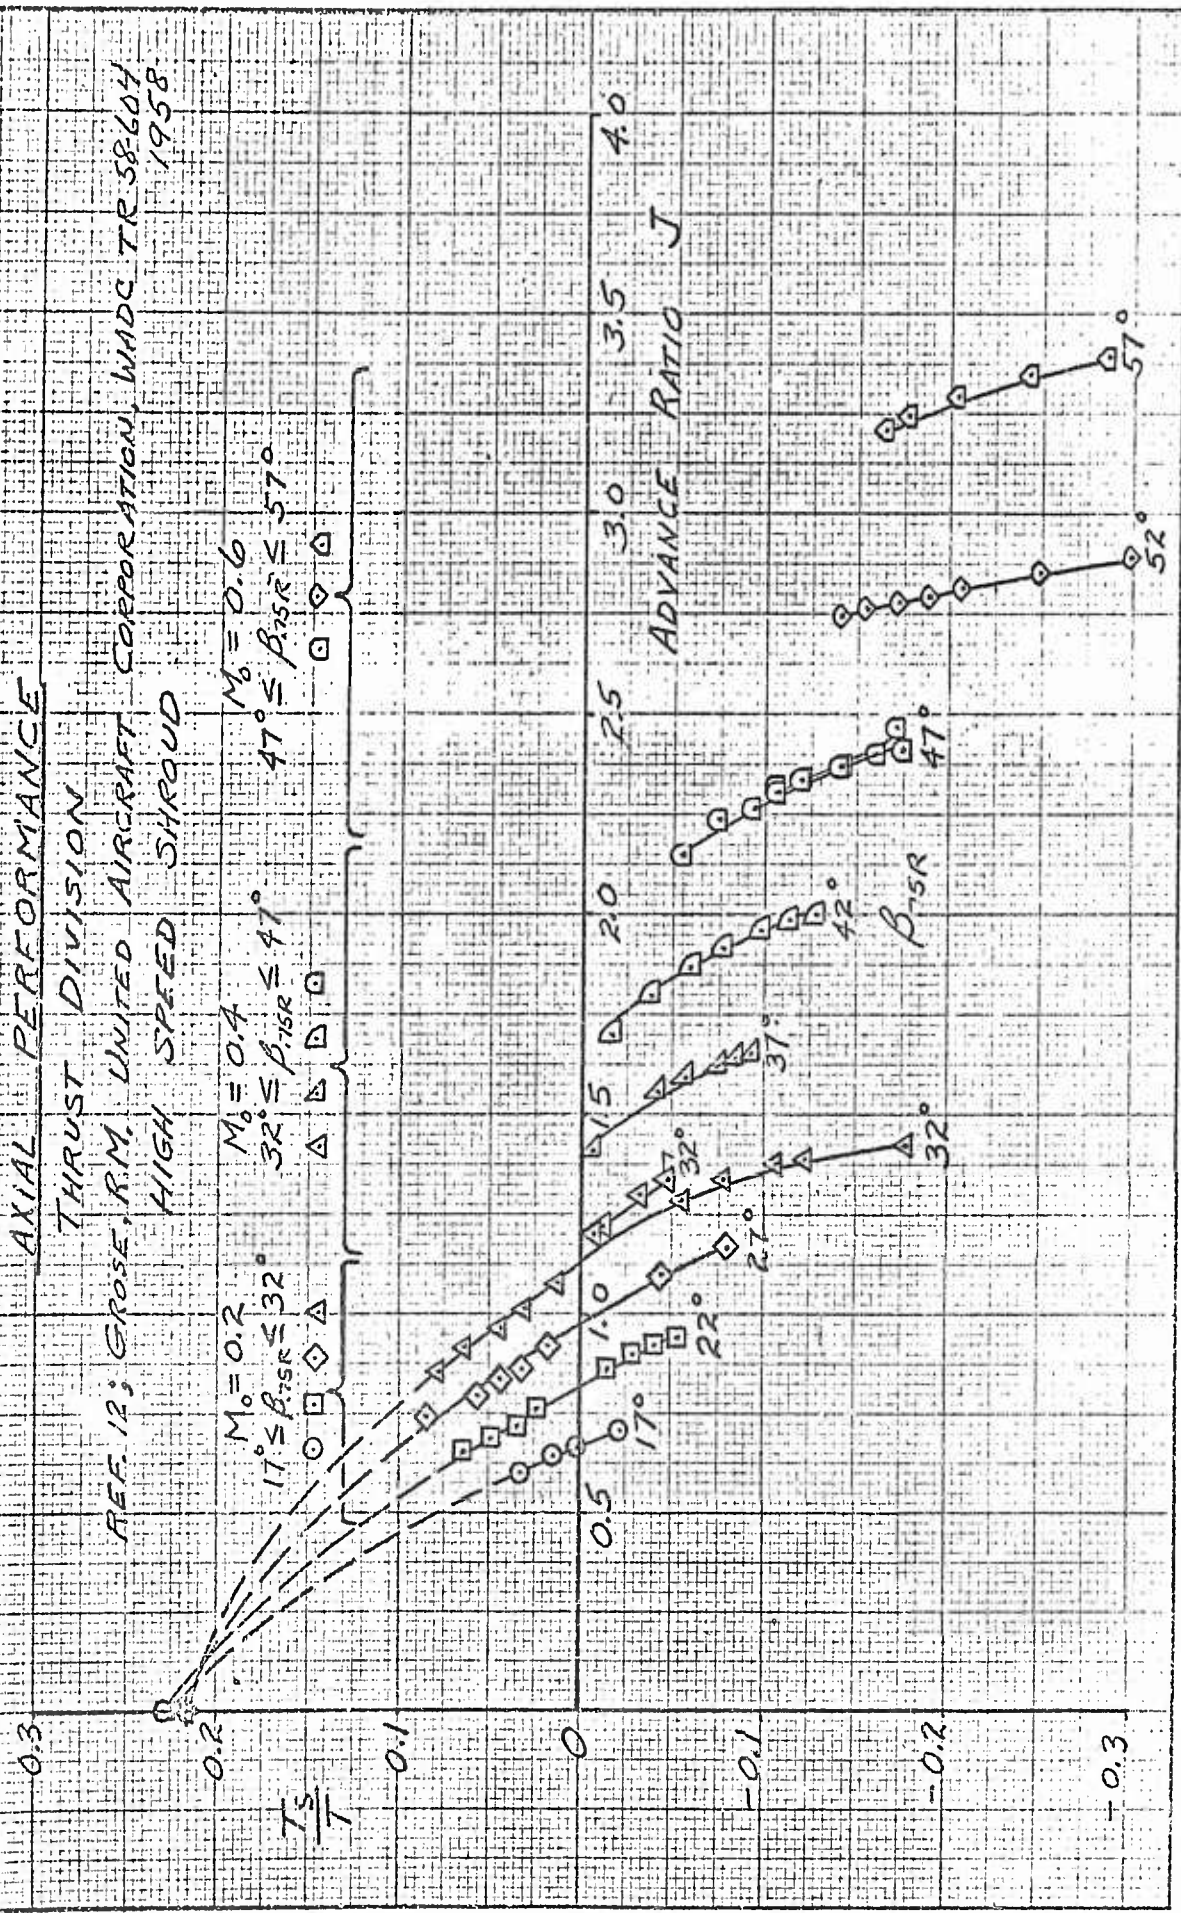 AXIAL PERFORMANCE
THRUST DIVISION
REF. 12; GROSE, R.M. UNITED AIRCRAFT CORPORATION, WADC TR 58-604
1958
HIGH SPEED SHROUD
M₀ = 0.2
17° ≤ β.75R ≤ 32°
M₀ = 0.4
32° ≤ β.75R ≤ 47°
M₀ = 0.6
47° ≤ β.75R ≤ 57°
0.3
0.2
0.1
0
-0.1
-0.2
-0.3
Ts/T
0.5
1.0
1.5
2.0
2.5
3.0
3.5
4.0
ADVANCE RATIO J
17°
22°
27°
32°
32°
37°
42°
47°
52°
57°
β.75R